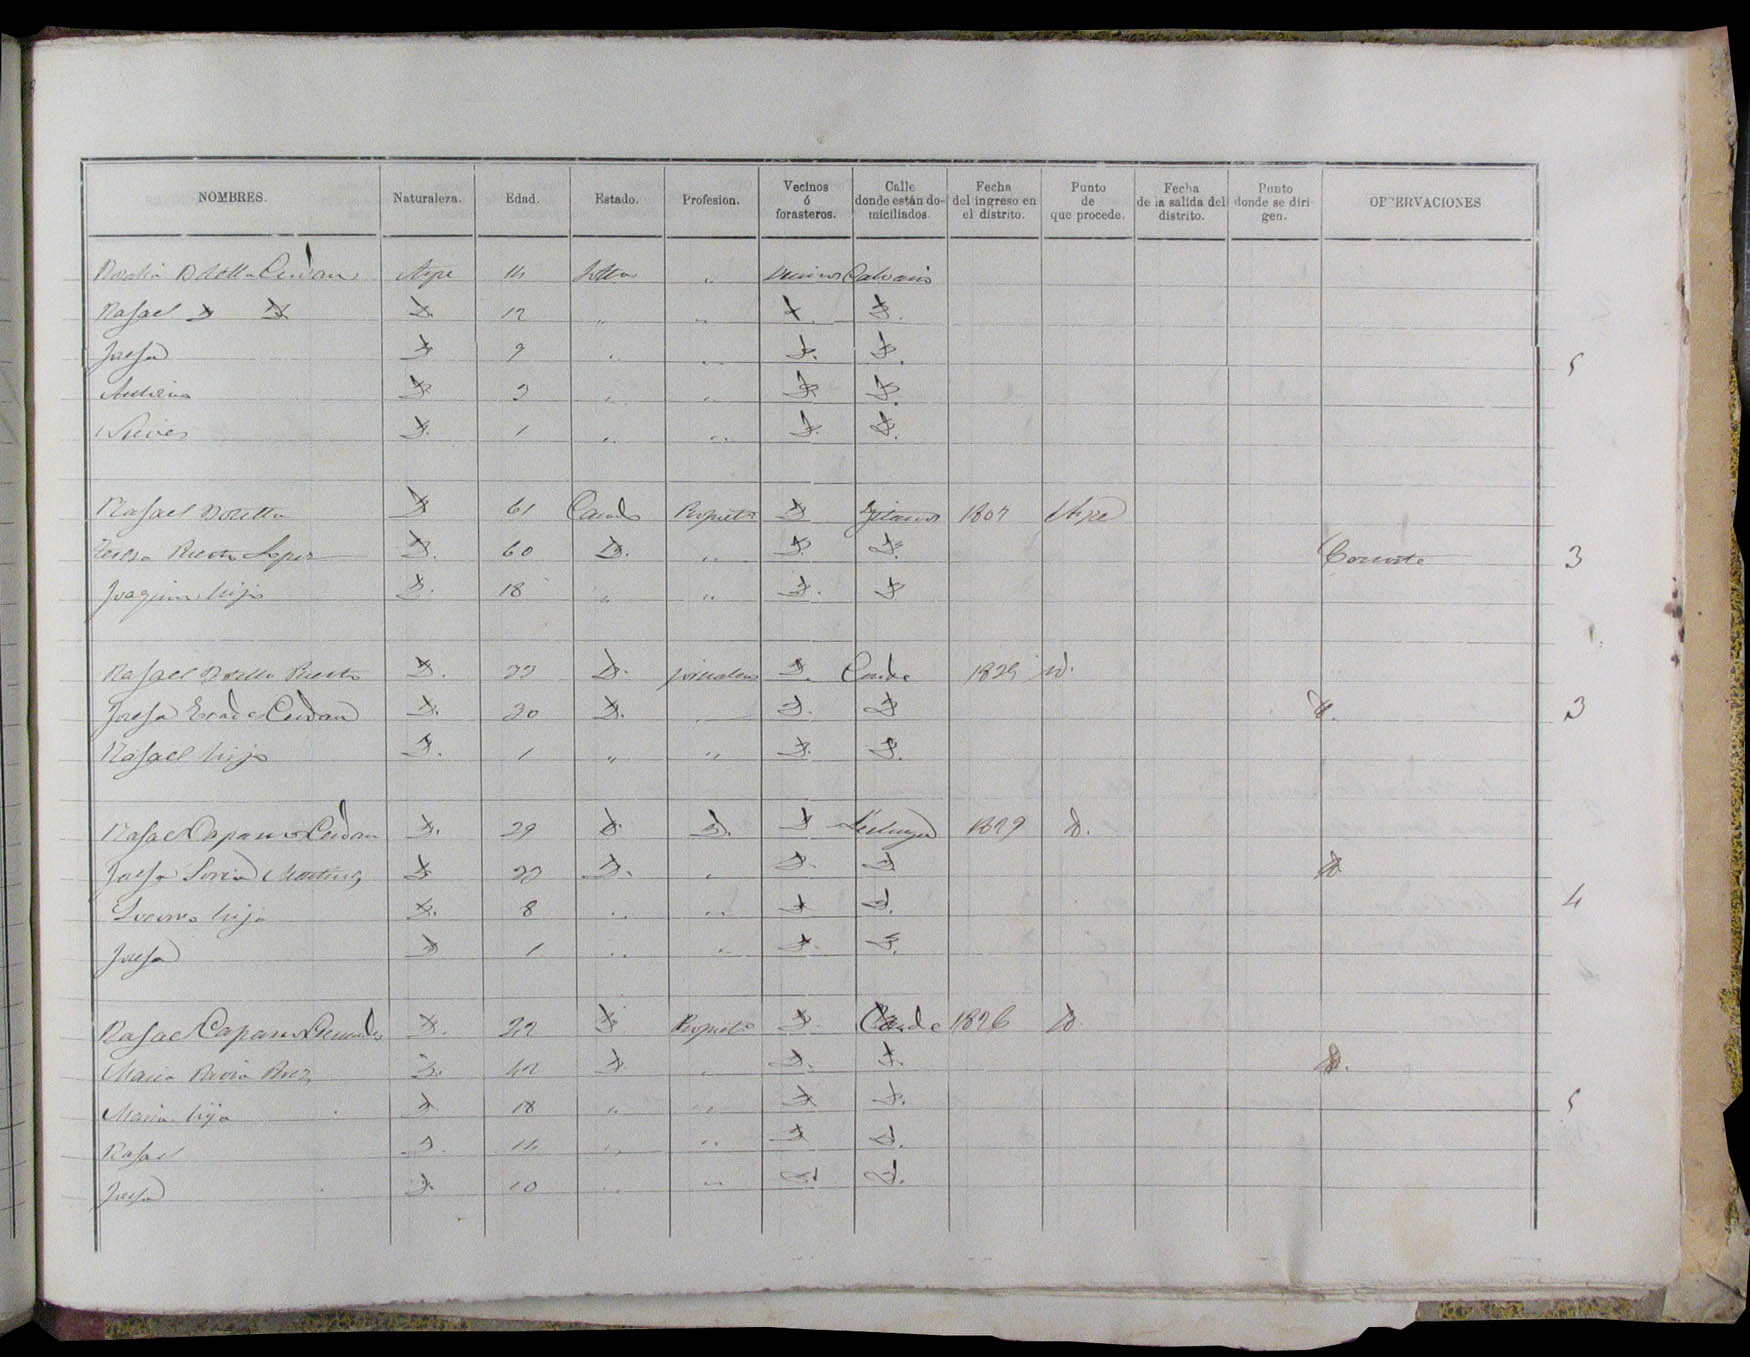 NOMBRES. Naturaleza. Edad. Estado. Profesion. Vecinos ó forasteros. Calle donde están domiciliados. Fecha del ingreso en el distrito. Punto de que procede. Fecha de la salida del distrito. Punto donde se dirigen. OBSERVACIONES
Rosalia Botella Cerdan Aspe 14 Solta " Vecinos Calvario
Rafael D D D 12 " " D D.
Josefa D 9 " " D. D. 5
Antonio D 3 " " D D.
Nieves D. 1 " " D. D.
Rafael Botella D 61 Casado Propieto D Gitanos 1807 Aspe
Teresa Puerto Lopez D. 60 D. " D. D. Consorte 3
Joaquin hijo D. 18 " " D. D
Rafael Botella Puerto D. 33 D. jornalero D. Conde 1829 D.
Josefa Cerdan D. 30 D. " D. D D. 3
Rafael hijo D. 1 " " D. D.
Rafael Caparros Cerdan D. 29 D. D. D 1829 D.
Josefa Soria Martinez D 33 D. " D. D D
hijo D. 8 " " D D. 4
Josefa D 1 " " D. D.
Rafael Caparros D. D Propieto D Conde 1826 D.
Maria Pavia Perez D. 42 D " D. D. D.
Maria hija D 18 " " D D. 5
Rafael D. 14 " " D D.
Josefa D. 10 " " D D.